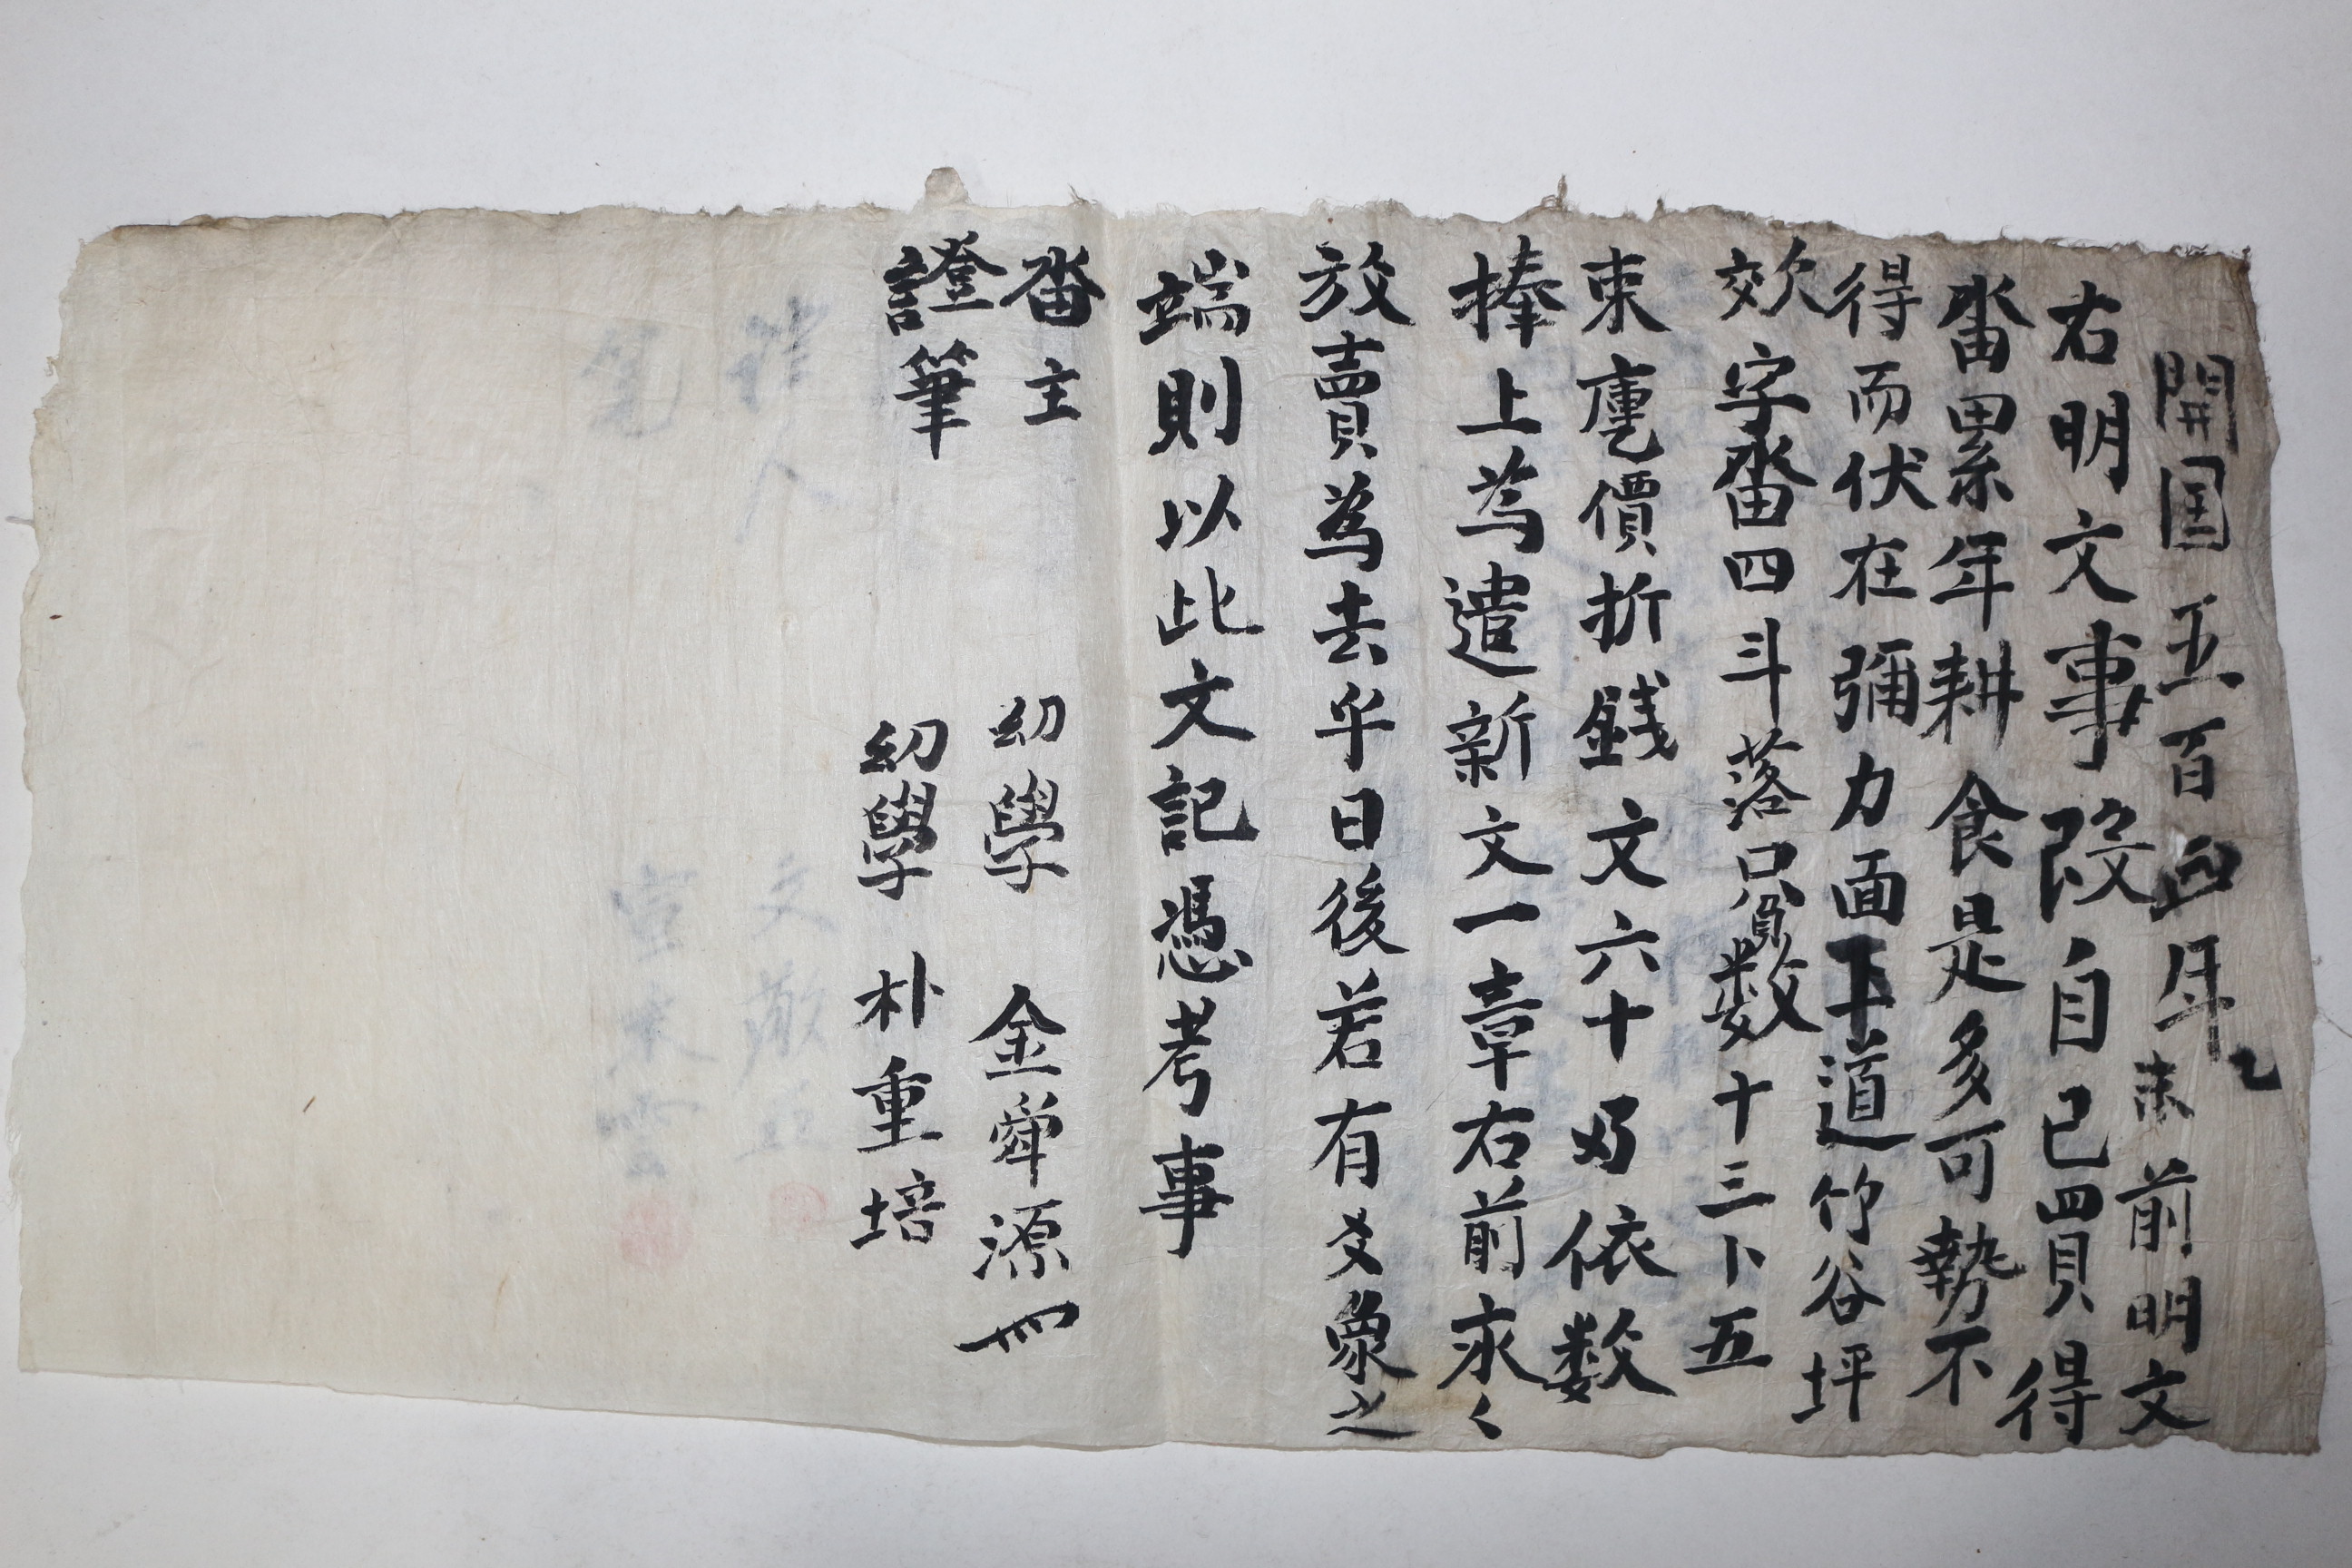 開国五百四年乙未 前明文
右明文事段自己買得
畓累年耕食是多可勢不
得而伏在彌力面下道竹谷坪
效字畓四斗落只負数十三卜五
束庫價折銭文六十両依数
捧上為遣新文一章右前永〻
放賣為去乎日後若有爻象之
端則以此文記憑考事
畓主 幼學 金舜源
證筆 幼學 朴重培